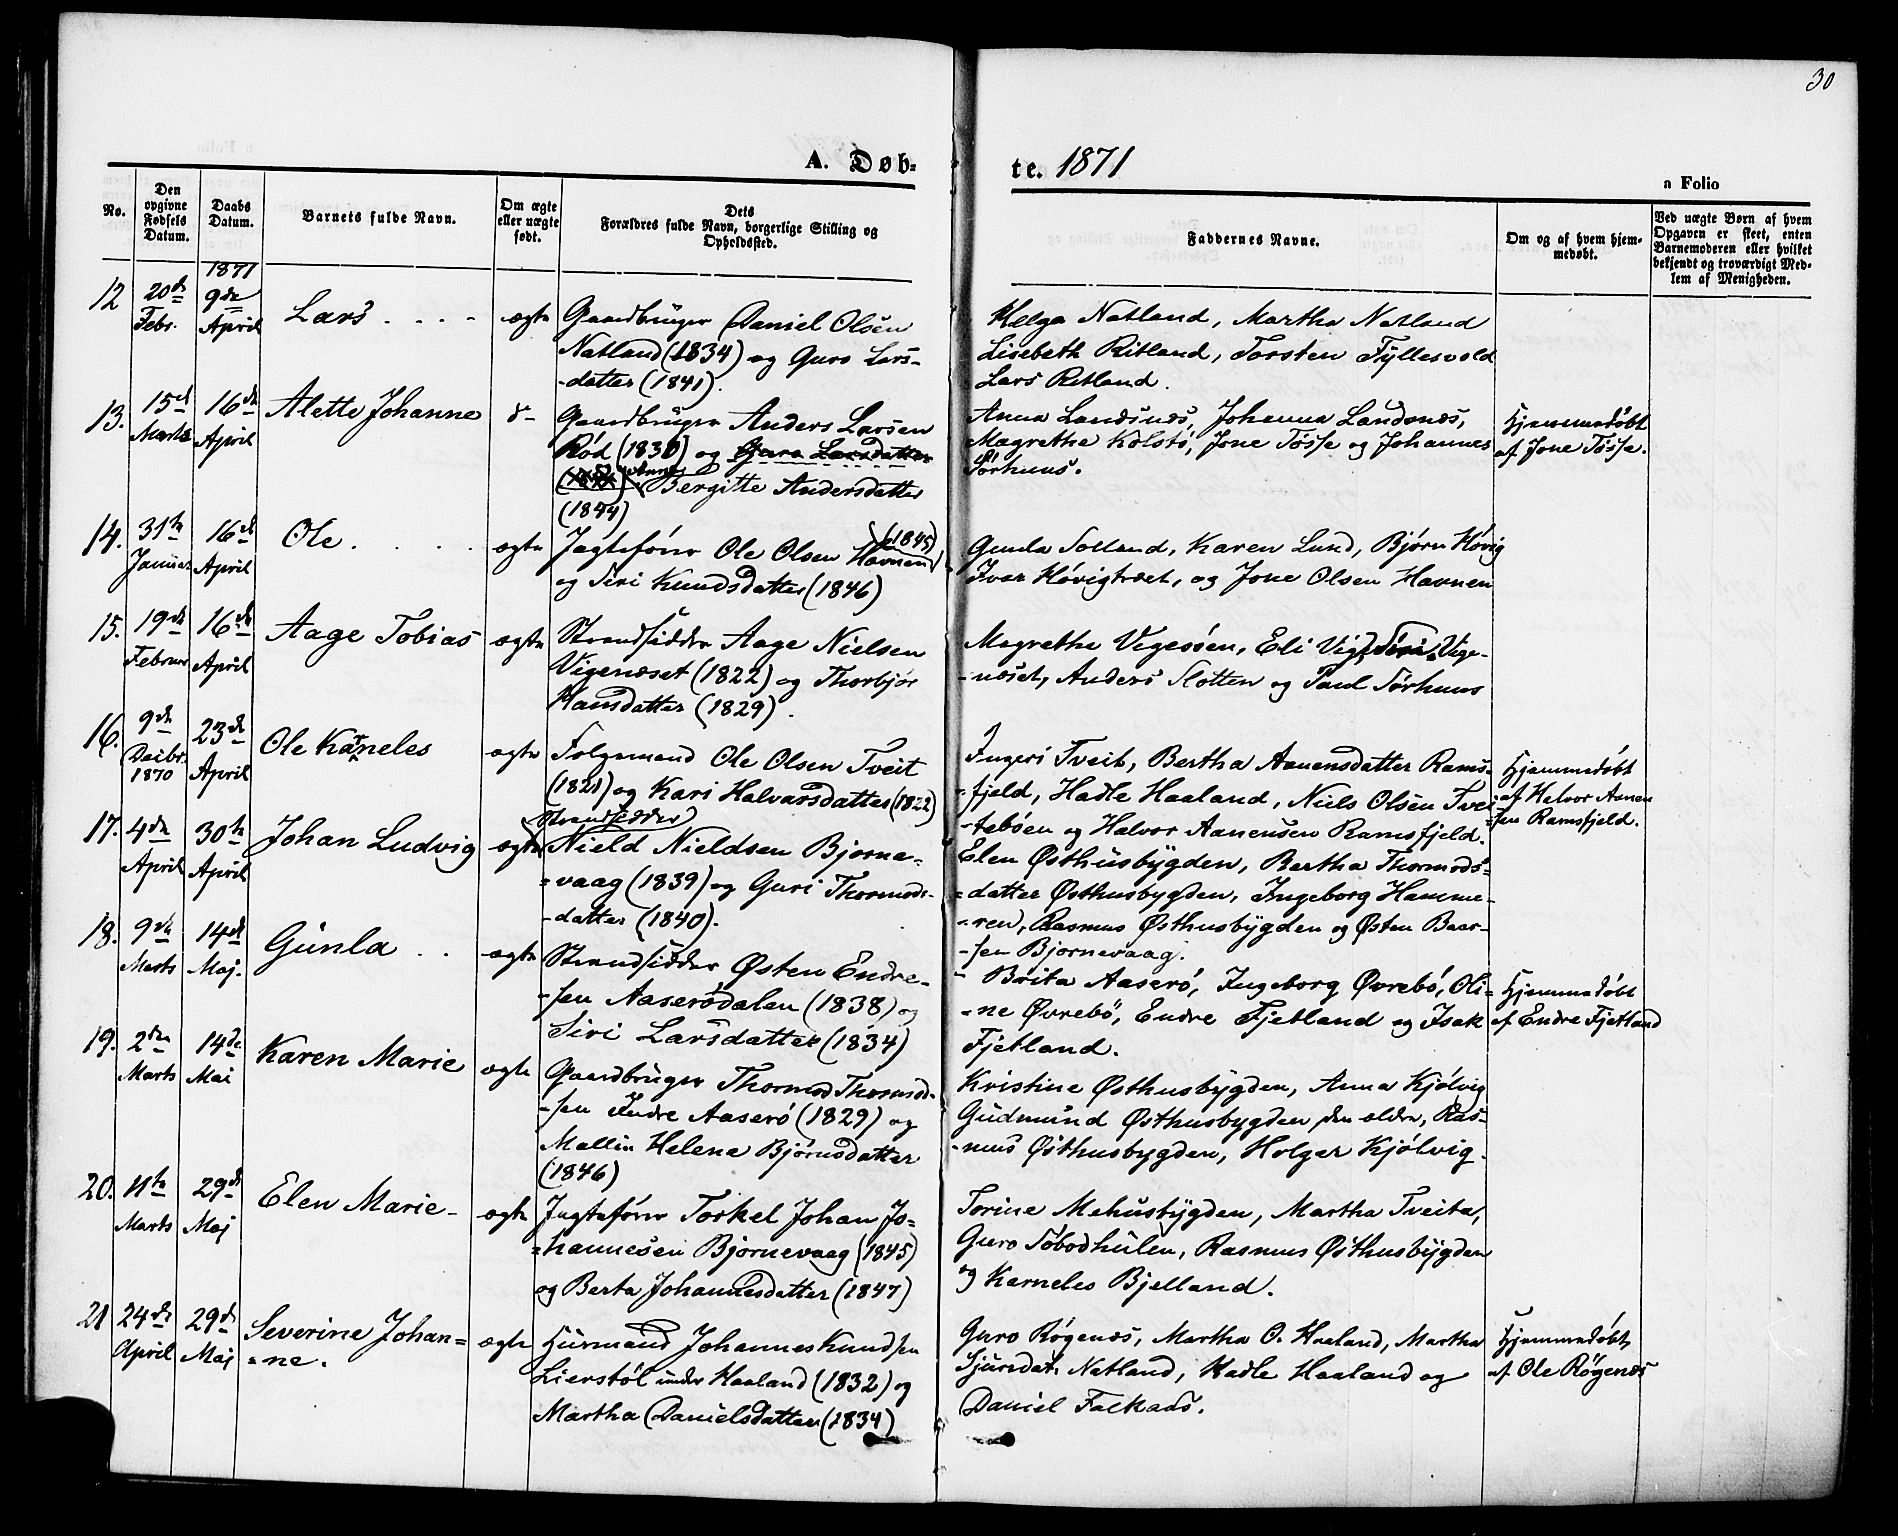 30
A. Døb-
te. 1871
a Folio
No.
Den opgivne Fødsels Datum.
Daabs Datum.
Barnets fulde Navn.
Om ægte eller uægte født.
Dets Forældres fulde Navn, borgerlige Stilling og Opholdssted.
Faddernes Navne.
Om og af hvem hjemmedøbt.
Ved uægte Børn af hvem Opgaven er skeet, enten Barnemoderen eller hvilket bekjendt og troværdigt Medlem af Menigheden.
1871
12 20de Febr. 9de April Lars ægte
Gaardbruger Daniel Olsen
Natland (1834) og Guro Lars-
-datter (1841).
Helga Natland, Martha Natland
Lisebeth Ritland, Torsten Fyllesvold
Lars Ritland.
13. 15d Marts 16de April Alette Johanne d-
Gaardbruger Anders Larsen
Rød (1830) og Guro Larsdatter
Anne Bergitte Andersdatter
(1844)
Anna Landsnæs, Johanna Landsnæs,
Magretha Kolstø, Jone Tøsse og Johannes
Sørhuus.
Hjemmedøbt
af Jone Tøsse.
14. 31te Januar 16de April Ole ægte
Jagtefører Ole Olsen Havnen (1845)
og Siri Knudsdatter (1846)
Gunla Solland, Karen Lund, Bjørn Høvig
Ivar Høvigtræet, og Jone Olsen Havnen
15. 19de Februar 16de April Aage Tobias ægte
Strandsidder Aage Nielsen
Vigenæset (1822) og Thorbjør
Hansdatter (1829).
Magretha Vigesøen, Eli Vig, Siri Vige-
-næset, Anders Slotten og Paul Sørhuus
16. 9de Decbr. 1870 23de April Ole Karneles ægte
Folgemand Ole Olsen Tveit
(1821) og Kari Halvarsdatter (1822)
Ingeri Tveit, Bertha Aanensdatter Rams-
-fjeld, Hadle Haaland, Niels Olsen Tvei-
-tebøen og Halvor Aanensen Ramsfjeld.
Hjemmedøbt
af Halvor Aanen
-sen Ramsfjeld.
17. 4de April 30te April Johan Ludvig ægte
Strandsidder
Nield Nieldsen Bjorne-
-vaag (1839) og Guri Thormods-
-datter (1840).
Elen Østhusbygden, Bertha Thormods-
-datter Østhusbygden, Ingeborg Hamme-
-ren, Rasmus Østhusbygden og Østen Baar-
-sen Bjornevaag.
18. 9de Marts 14de Maj. Gunla ægte
Strandsidder Østen Endre-
-sen Aaserødalen (1838) og
Siri Larsdatter (1834)
Brita Aaserø, Ingeborg Øvrebø, Oli-
-ne Øvrebø, Endre Fjetland og Isak
Fjetland.
Hjemmedøbt
af Endre Fjetland
19. 2den Marts 14de Mai Karen Marie ægte
Gaardbruger Thormod Thormod-
-sen Indre Aaserø (1829) og
Mallin Helene Bjørnsdatter
(1846)
Kristine Østhusbygden, Anna Kjølvig
Gudmund Østhusbygden den eldre, Ras-
-mus Østhusbygden, Holger Kjølvig.
20. 11te Marts 29de Maj Elen Marie ægte
Jagtefører Torkel Johan Jo-
-hannesen Bjornevaag (1845)
og Berta Johannesdatter (1847)
Torine Mehusbygden, Martha Tveita,
Guro Søbodhulen, Rasmus Østhusbygden
og Karneles Bjelland.
21 24de April 29de Maj Severine Johan-
-ne. ægte
Huusmand Johannes Knudsen
Lierstøl under Haaland (1832) og
Martha Danielsdatter (1834)
Guro Røgenæs, Martha O. Haaland, Martha
Sjursdat. Natland, Hadle Haaland og
Daniel Falkaas.
Hjemmedøbt
af Ole Røgenæs